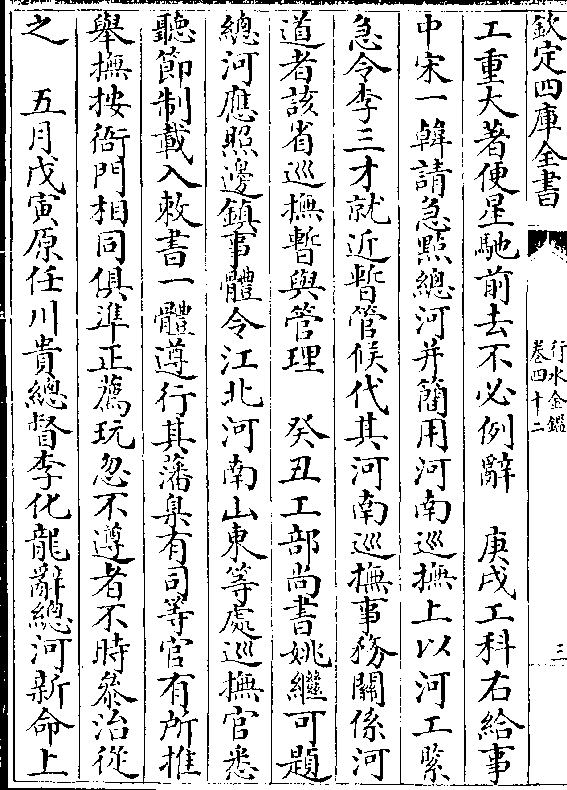 欽定四庫全書
行水金鑑
卷四十二
三
工重大著便星馳前去不必例辭　庚戌工科右給事
中宋一韓請急點總河并簡用河南巡撫上以河工緊
急令李三才就近暫管候代其河南巡撫事務關係河
道者該省巡撫暫與管理　癸丑工部尚書姚繼可題
總河應照邊鎮事體令江北河南山東等處巡撫官悉
聽節制載入敕書一體遵行其藩臬有司等官有所推
舉撫按衙門相同俱準正薦玩忽不遵者不時參治從
之　五月戊寅原任川貴總督李化龍辭總河新命上